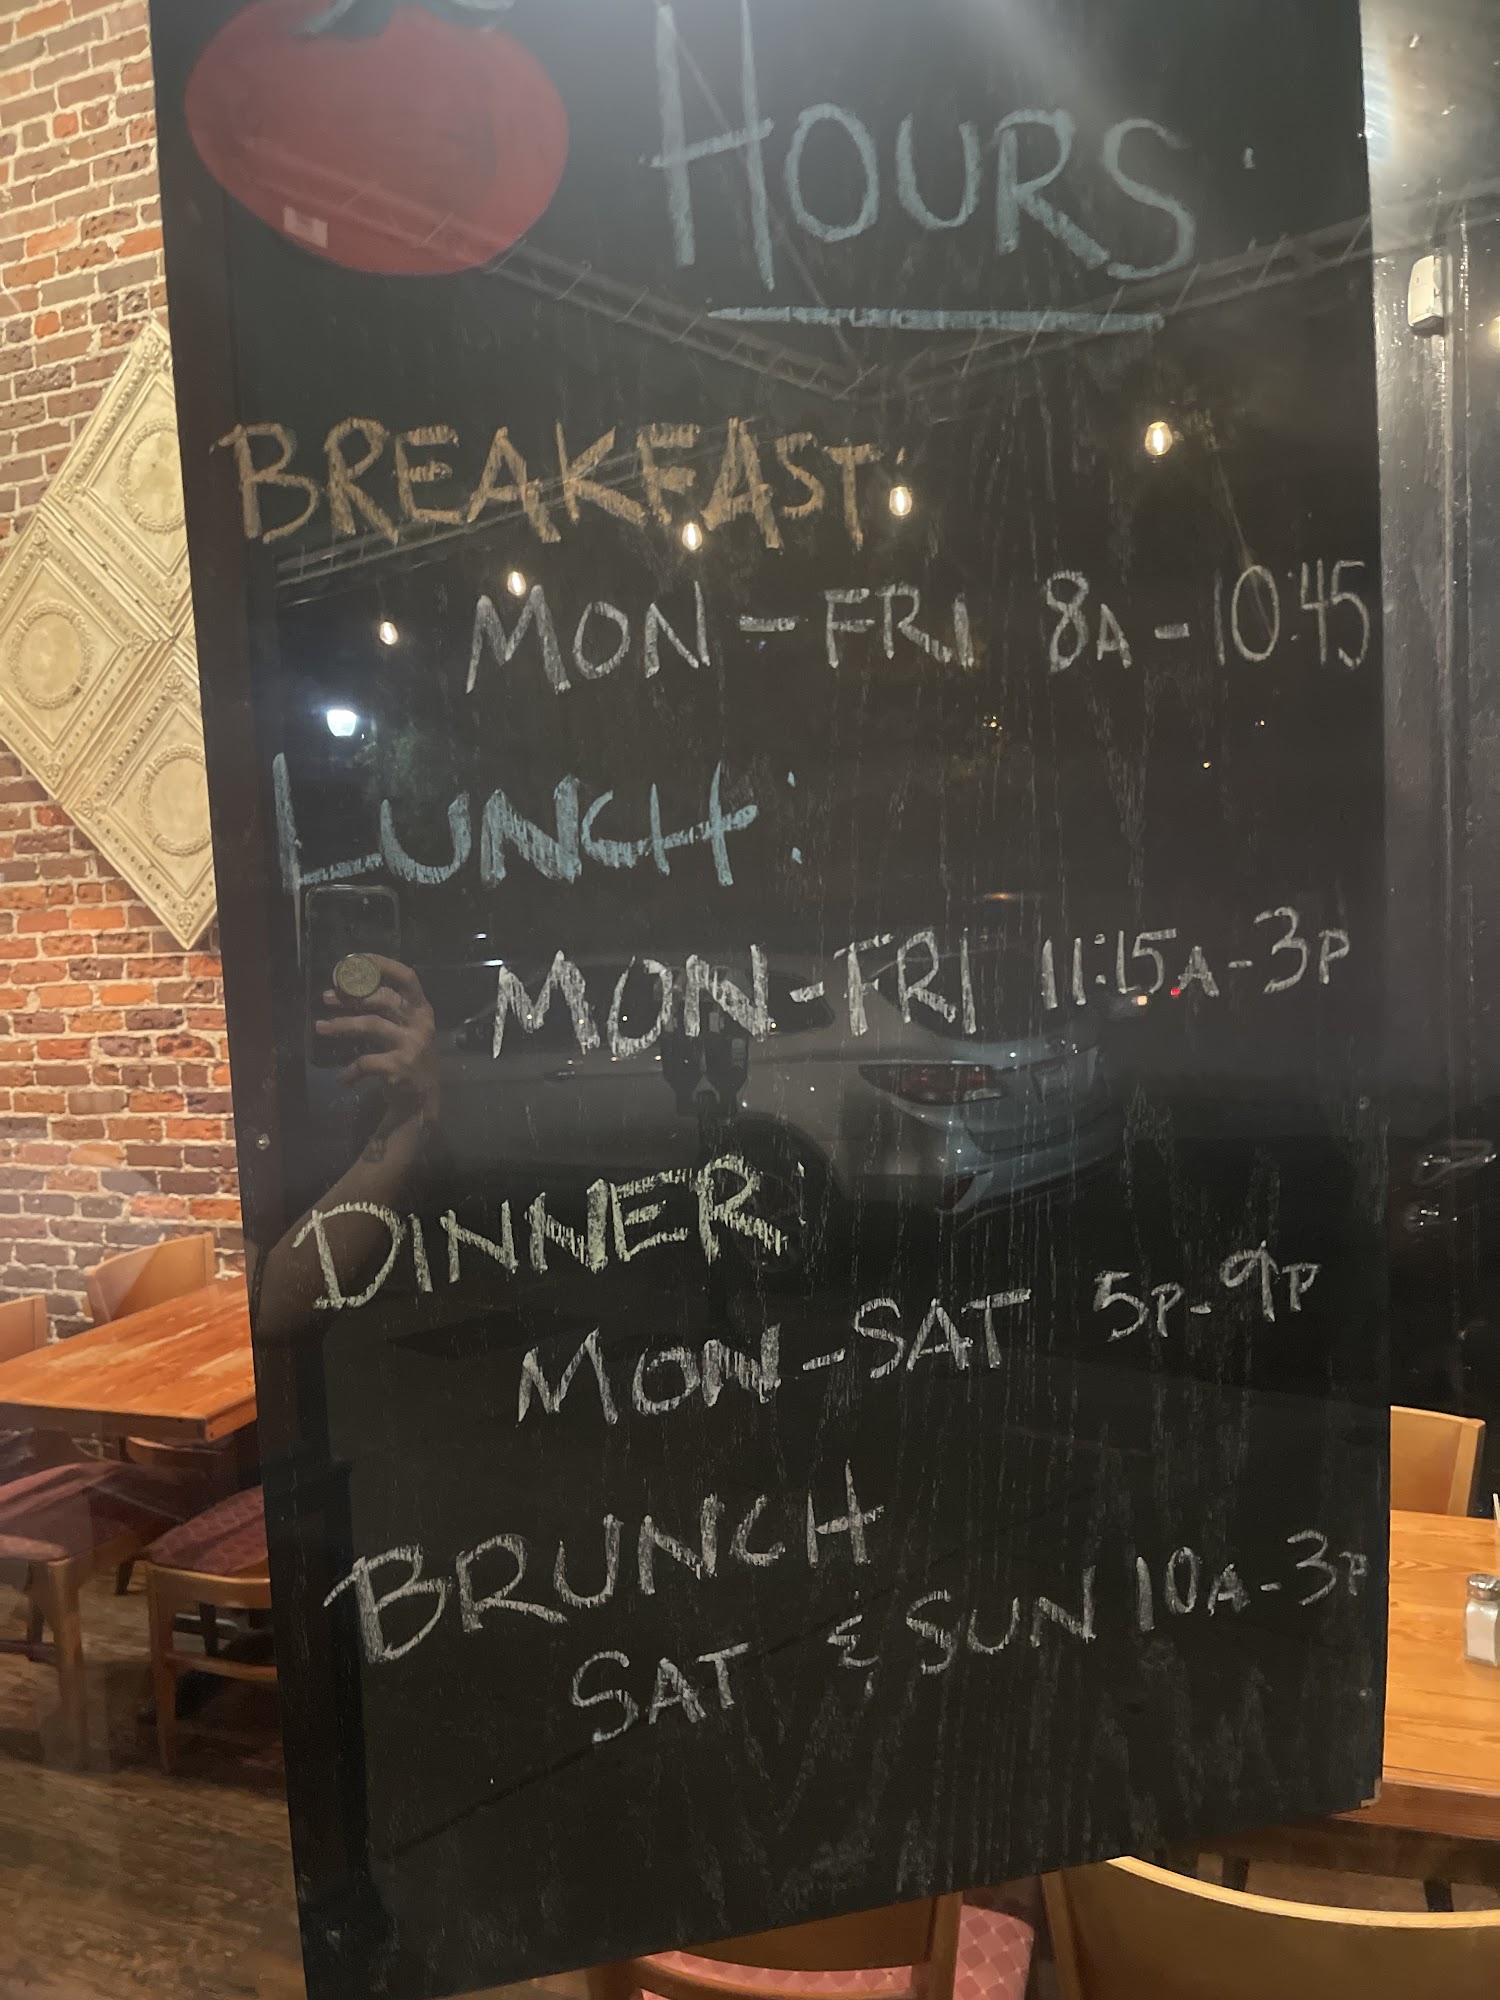 HOURS
BREAKFAST:
MON-FRI 8A-10:45
LUNCH:
MON-FRI 11:15A-3P
DINNER:
MON-SAT 5P-9P
BRUNCH
SAT & SUN 10A-3P